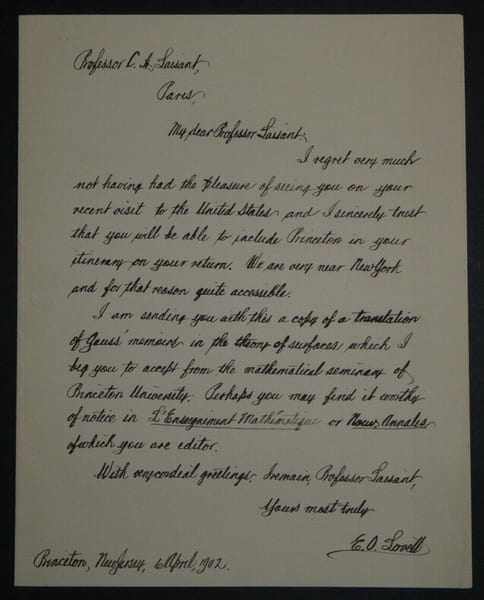 Professor C. A. Laisant,
Paris,
My dear Professor Laisant,
I regret very much
not having had the pleasure of seeing you on your
recent visit to the United States and I sincerely trust
that you will be able to include Princeton in your
itinerary on your return. We are very near New York
and for that reason quite accessible.
I am sending you with this a copy of a translation
of Gauss' memoirs in the theory of surfaces which I
beg you to accept from the mathematical seminary of
Princeton University. Perhaps you may find it worthy
of notice in L'Enseignment Mathématique or Nouv. Annales
of which you are editor.
With very cordeal greetings, I remain, Professor Laisant,
Yours most truly
E. O. Lovett
Princeton, New Jersey, 6 April, 1902.